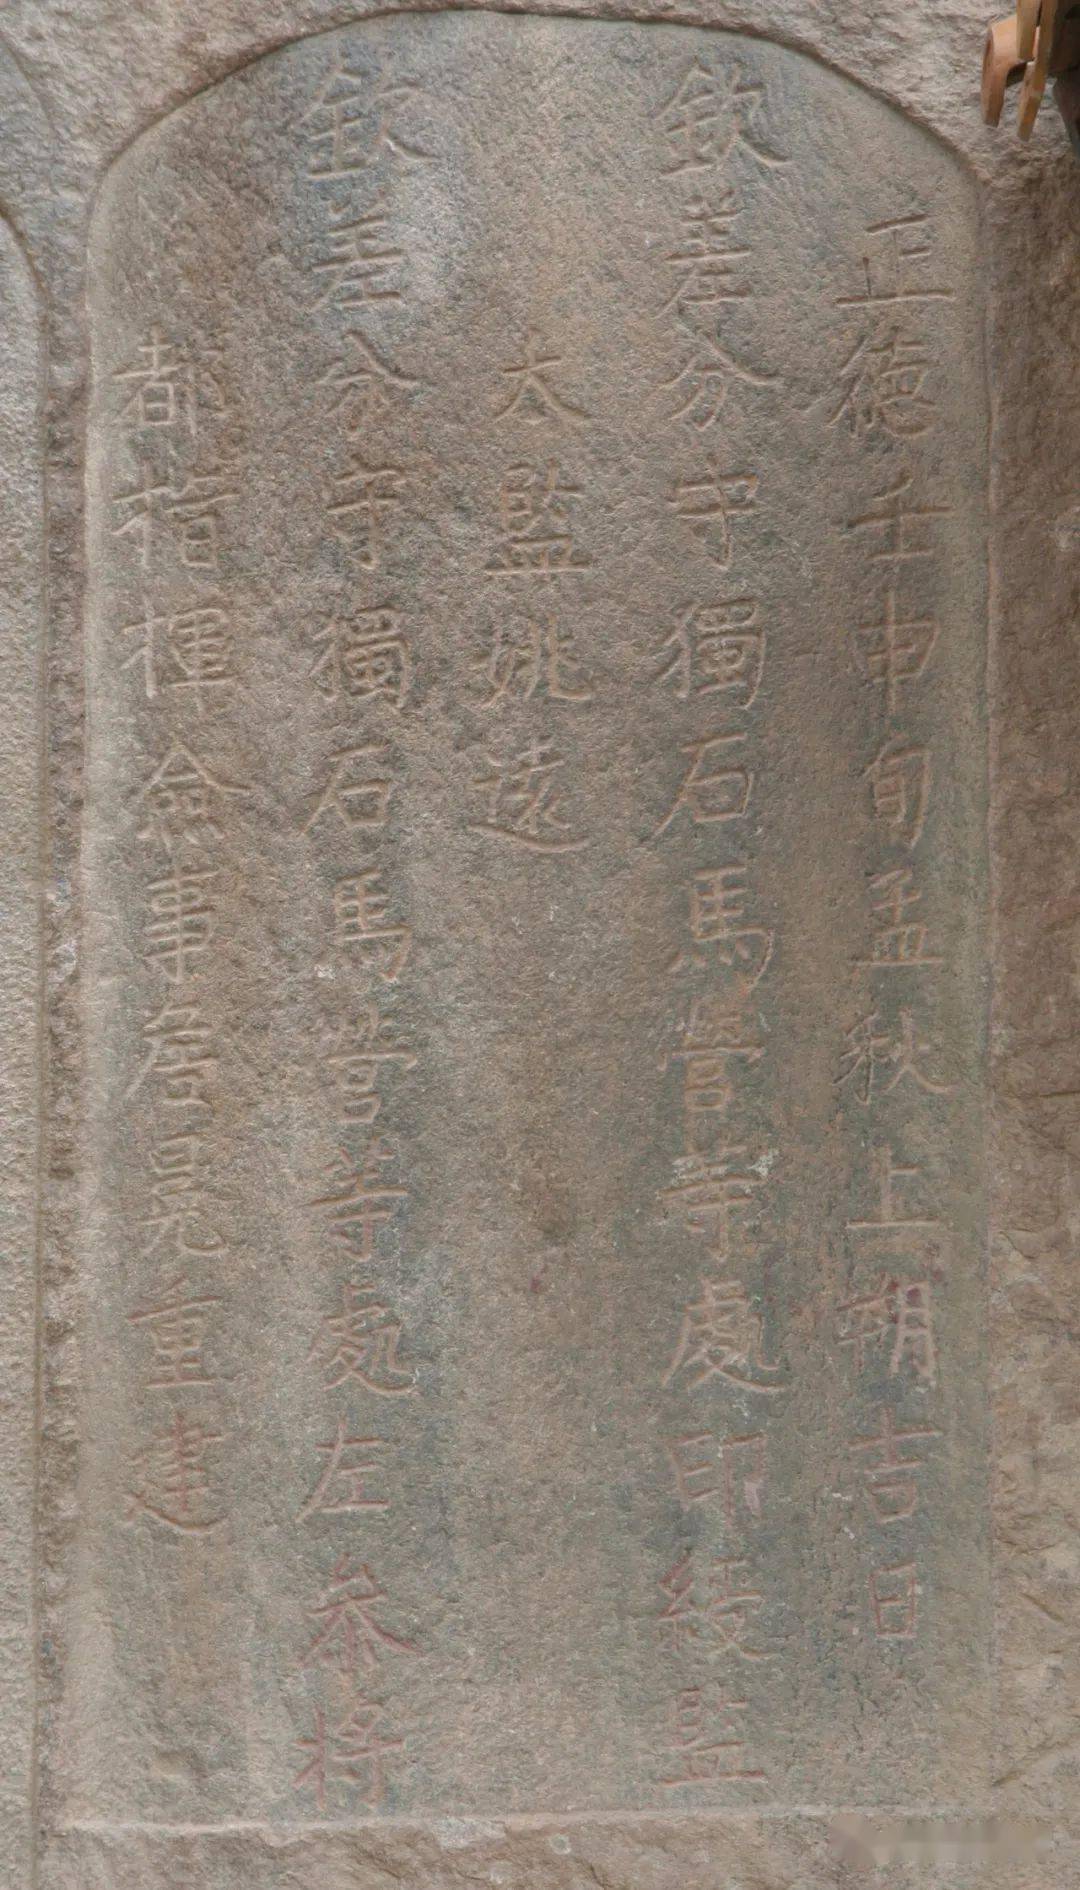 正德壬申旬孟秋上朔吉日
欽差分守獨石馬營等處印綬監
太監姚遠
欽差分守獨石馬營等處左參將
都指揮僉事居昆重建